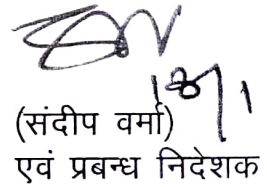 (संदीप वर्मा)
एवं प्रबन्ध निदेशक